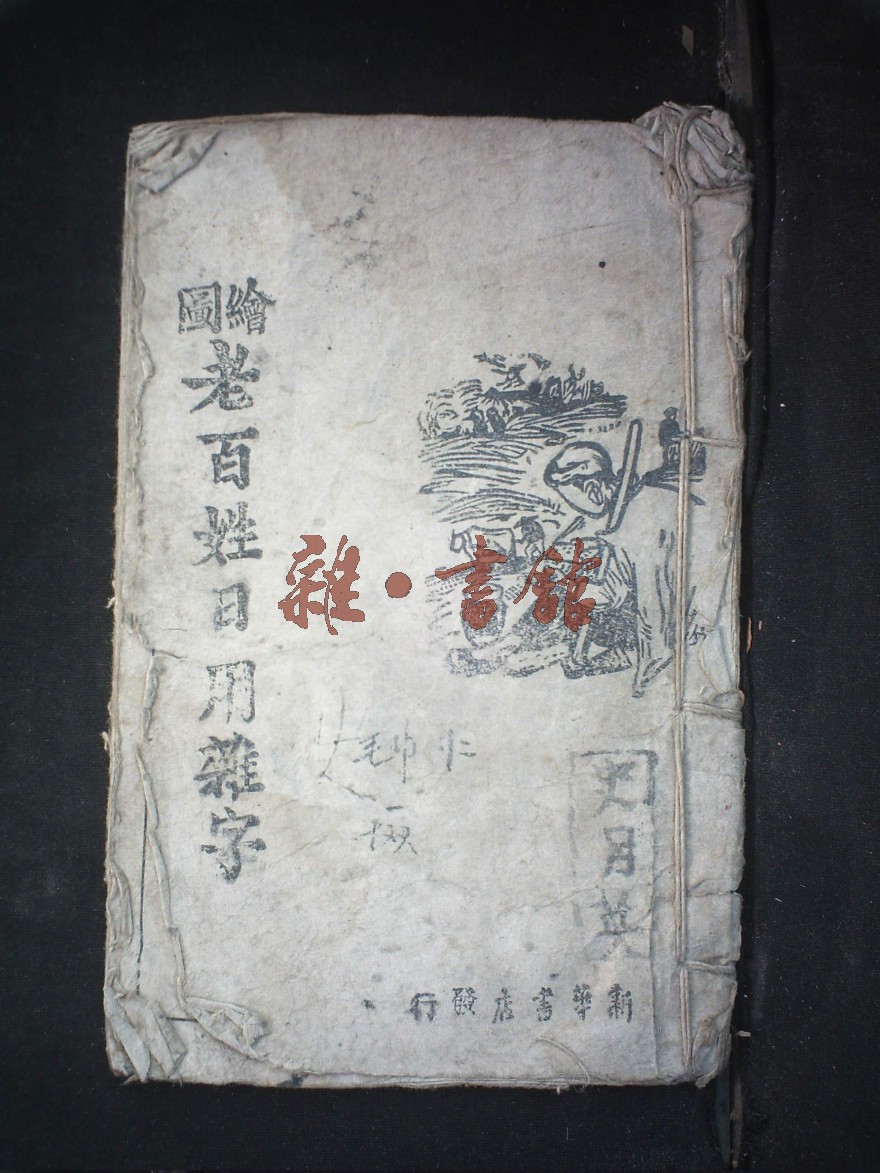 繪圖
老百姓日用雜字
雜·書館
新華書店發行